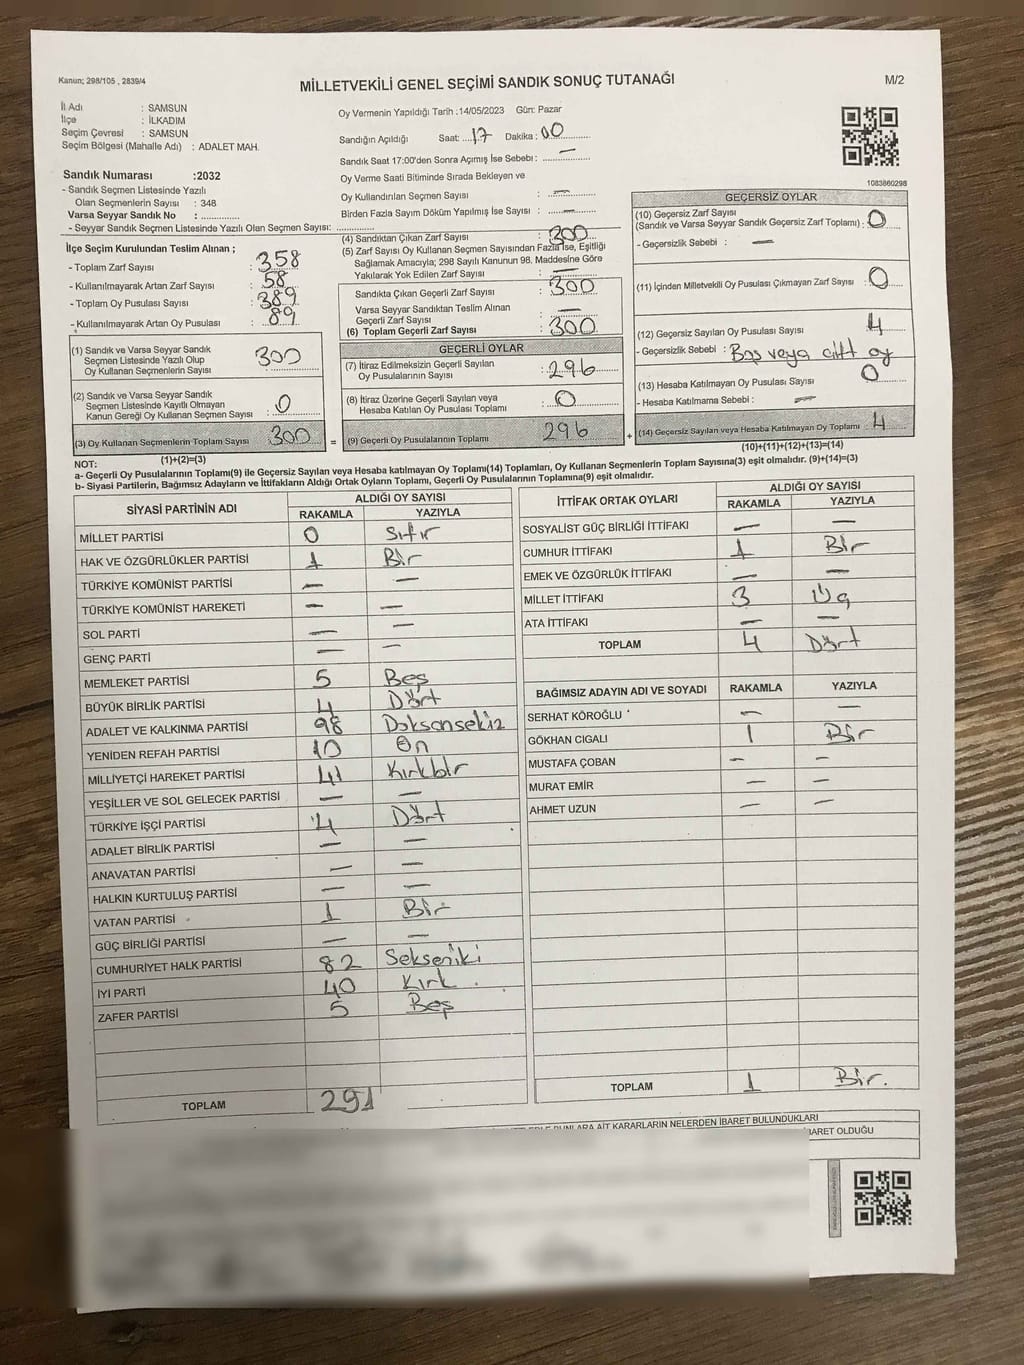 Kanun; 298/105 , 2839/4
MİLLETVEKİLİ GENEL SEÇİMİ SANDIK SONUÇ TUTANAĞI
M/2
İl Adı : SAMSUN
İlçe : İLKADIM
Seçim Çevresi : SAMSUN
Seçim Bölgesi (Mahalle Adı) : ADALET MAH.
Sandık Numarası :2032
- Sandık Seçmen Listesinde Yazılı
Olan Seçmenlerin Sayısı : 348
Varsa Seyyar Sandık No : ..............
- Seyyar Sandık Seçmen Listesinde Yazılı Olan Seçmen Sayısı: ..............
Oy Vermenin Yapıldığı Tarih :14/05/2023 Gün: Pazar
Sandığın Açıldığı Saat: 17 Dakika : 00
Sandık Saat 17:00'den Sonra Açımış İse Sebebi : —
Oy Verme Saati Bitiminde Sırada Bekleyen ve
Oy Kullandırılan Seçmen Sayısı : —
Birden Fazla Sayım Döküm Yapılmış İse Sayısı : —
1083860298
İlçe Seçim Kurulundan Teslim Alınan ;
- Toplam Zarf Sayısı : 358
- Kullanılmayarak Artan Zarf Sayısı : 58
- Toplam Oy Pusulası Sayısı : 389
- Kullanılmayarak Artan Oy Pusulası : 89
(1) Sandık ve Varsa Seyyar Sandık
Seçmen Listesinde Yazılı Olup
Oy Kullanan Seçmenlerin Sayısı : 300
(2) Sandık ve Varsa Seyyar Sandık
Seçmen Listesinde Kayıtlı Olmayan
Kanun Gereği Oy Kullanan Seçmen Sayısı : 0
(3) Oy Kullanan Seçmenlerin Toplam Sayısı 300
(1)+(2)=(3)
(4) Sandıktan Çıkan Zarf Sayısı : 300
(5) Zarf Sayısı Oy Kullanan Seçmen Sayısından Fazla İse, Eşitliği
Sağlamak Amacıyla; 298 Sayılı Kanunun 98. Maddesine Göre
Yakılarak Yok Edilen Zarf Sayısı : —
Sandıkta Çıkan Geçerli Zarf Sayısı : 300
Varsa Seyyar Sandıktan Teslim Alınan
Geçerli Zarf Sayısı : —
(6) Toplam Geçerli Zarf Sayısı : 300
GEÇERLİ OYLAR
(7) İtiraz Edilmeksizin Geçerli Sayılan
Oy Pusulalarının Sayısı : 296
(8) İtiraz Üzerine Geçerli Sayılan veya
Hesaba Katılan Oy Pusulası Toplamı : 0
= (9) Geçerli Oy Pusulalarının Toplamı 296
GEÇERSİZ OYLAR
(10) Geçersiz Zarf Sayısı
(Sandık ve Varsa Seyyar Sandık Geçersiz Zarf Toplamı) : 0
- Geçersizlik Sebebi : —
(11) İçinden Milletvekili Oy Pusulası Çıkmayan Zarf Sayısı : 0
(12) Geçersiz Sayılan Oy Pusulası Sayısı : 4
- Geçersizlik Sebebi : Boş veya çift oy
(13) Hesaba Katılmayan Oy Pusulası Sayısı : 0
- Hesaba Katılmama Sebebi : —
+ (14) Geçersiz Sayılan veya Hesaba Katılmayan Oy Toplamı : 4
(10)+(11)+(12)+(13)=(14)
NOT:
a- Geçerli Oy Pusulalarının Toplamı(9) ile Geçersiz Sayılan veya Hesaba katılmayan Oy Toplamı(14) Toplamları, Oy Kullanan Seçmenlerin Toplam Sayısına(3) eşit olmalıdır. (9)+(14)=(3)
b- Siyasi Partilerin, Bağımsız Adayların ve İttifakların Aldığı Ortak Oyların Toplamı, Geçerli Oy Pusulalarının Toplamına(9) eşit olmalıdır.
SİYASİ PARTİNİN ADI ALDIĞI OY SAYISI
RAKAMLA YAZIYLA
MİLLET PARTİSİ 0 Sıfır
HAK VE ÖZGÜRLÜKLER PARTİSİ 1 Bir
TÜRKİYE KOMÜNİST PARTİSİ — —
TÜRKİYE KOMÜNİST HAREKETİ — —
SOL PARTİ — —
GENÇ PARTİ — —
MEMLEKET PARTİSİ 5 Beş
BÜYÜK BİRLİK PARTİSİ 4 Dört
ADALET VE KALKINMA PARTİSİ 98 Doksansekiz
YENİDEN REFAH PARTİSİ 10 On
MİLLİYETÇİ HAREKET PARTİSİ 41 Kırkbir
YEŞİLLER VE SOL GELECEK PARTİSİ — —
TÜRKİYE İŞÇİ PARTİSİ 4 Dört
ADALET BİRLİK PARTİSİ — —
ANAVATAN PARTİSİ — —
HALKIN KURTULUŞ PARTİSİ — —
VATAN PARTİSİ 1 Bir
GÜÇ BİRLİĞİ PARTİSİ — —
CUMHURİYET HALK PARTİSİ 82 Sekseniki
İYİ PARTİ 40 Kırk .
ZAFER PARTİSİ 5 Beş
TOPLAM 291
İTTİFAK ORTAK OYLARI ALDIĞI OY SAYISI
RAKAMLA YAZIYLA
SOSYALİST GÜÇ BİRLİĞİ İTTİFAKI — —
CUMHUR İTTİFAKI 1 Bir
EMEK VE ÖZGÜRLÜK İTTİFAKI — —
MİLLET İTTİFAKI 3 Üç
ATA İTTİFAKI — —
TOPLAM 4 Dört
BAĞIMSIZ ADAYIN ADI VE SOYADI RAKAMLA YAZIYLA
SERHAT KÖROĞLU — —
GÖKHAN CIGALI 1 Bir
MUSTAFA ÇOBAN — —
MURAT EMİR — —
AHMET UZUN — —
TOPLAM 1 Bir.
BUNLARA AİT KARARLARIN NELERDEN İBARET BULUNDUKLARI
OLDUĞU